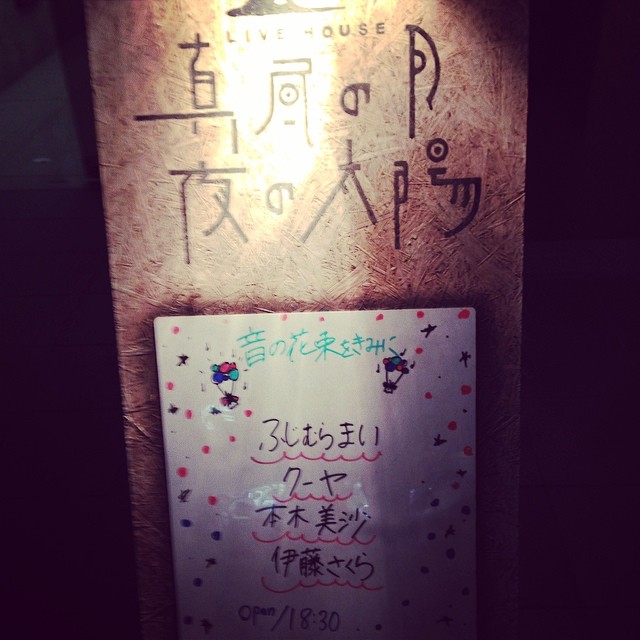 LIVE HOUSE
真昼の月
夜の太陽
音の花束をきみに
ふじむらまい
クーヤ
本木美沙
伊藤さくら
open/18:30